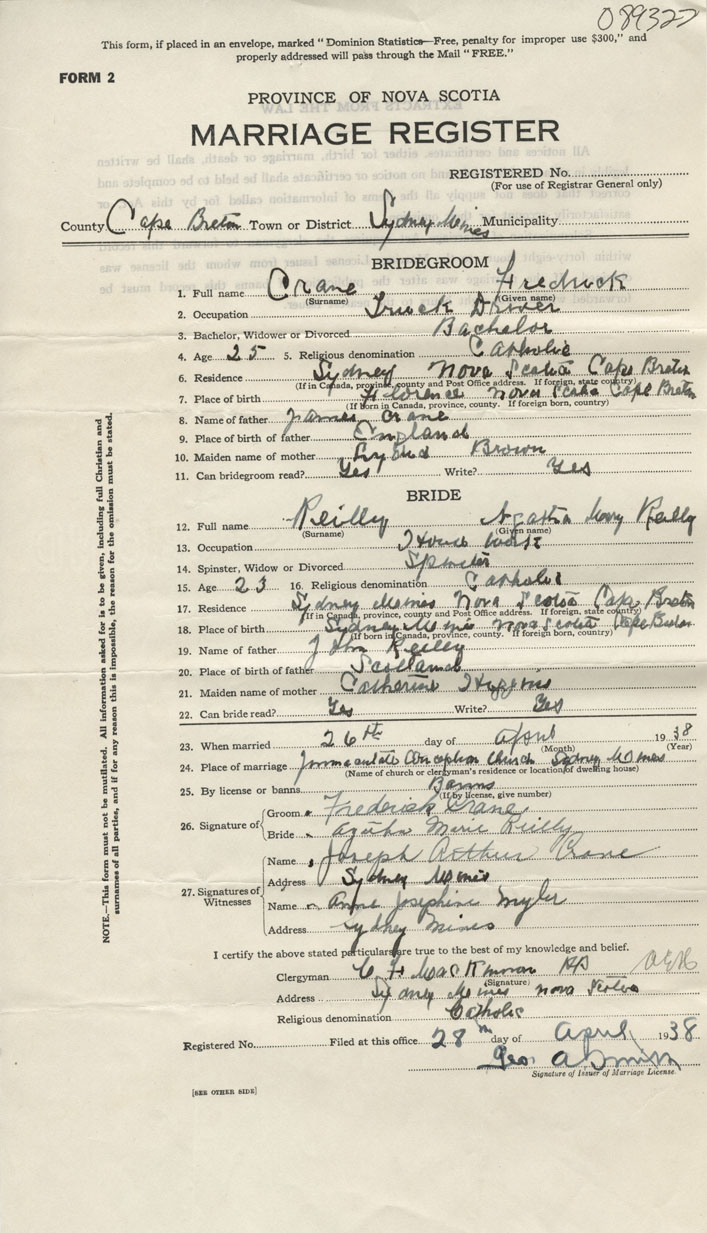 089327
This form, if placed in an envelope, marked "Dominion Statistics—Free, penalty for improper use $300," and
properly addressed will pass through the Mail "FREE."
FORM 2
PROVINCE OF NOVA SCOTIA
MARRIAGE REGISTER
REGISTERED No.
(For use of Registrar General only)
County Cape Breton Town or District Sydney Mines Municipality
BRIDEGROOM
1. Full name Crane Fredrick
(Surname) (Given name)
2. Occupation Truck Driver
3. Bachelor, Widower or Divorced Bachelor
4. Age 25 5. Religious denomination Catholic
6. Residence Sydney Nova Scotia Cape Breton
(If in Canada, province, county and Post Office address. If foreign, state country)
7. Place of birth Florence Nova Scotia Cape Breton
(If born in Canada, province, county. If foreign born, country)
8. Name of father James Crane
9. Place of birth of father England
10. Maiden name of mother Brown
11. Can bridegroom read? Yes Write? Yes
BRIDE
12. Full name Reilly Agatha Mary Reilly
(Surname) (Given name)
13. Occupation House Work
14. Spinster, Widow or Divorced Spinster
15. Age 23 16. Religious denomination Catholic
17. Residence Sydney Mines Nova Scotia Cape Breton
(If in Canada, province, county and Post Office address. If foreign, state country)
18. Place of birth Sydney Mines Nova Scotia Cape Breton
(If born in Canada, province, county. If foreign born, country)
19. Name of father John Reilly
20. Place of birth of father Scotland
21. Maiden name of mother Catherine Higgins
22. Can bride read? Yes Write? Yes
23. When married 26th day of April 1938
(Month) (Year)
24. Place of marriage Immaculate Conception Church Sydney Mines
(Name of church or clergyman's residence or location of dwelling house)
25. By license or banns Banns
(If by license, give number)
26. Signature of
Groom Frederick Crane
Bride Agatha Marie Reilly
27. Signatures of Witnesses
Name Joseph Arthur Crane
Address Sydney Mines
Name Anne Josephine Myler
Address Sydney Mines
I certify the above stated particulars are true to the best of my knowledge and belief.
Clergyman C. F. MacKinnon PP
(Signature)
Address Sydney Mines Nova Scotia
Religious denomination Catholic
Registered No. Filed at this office 28th day of April 1938
Geo A Smith
Signature of Issuer of Marriage License.
[SEE OTHER SIDE]
NOTE.—This form must not be mutilated. All information asked for is to be given, including full Christian and
surnames of all parties, and if for any reason this is impossible, the reason for the omission must be stated.